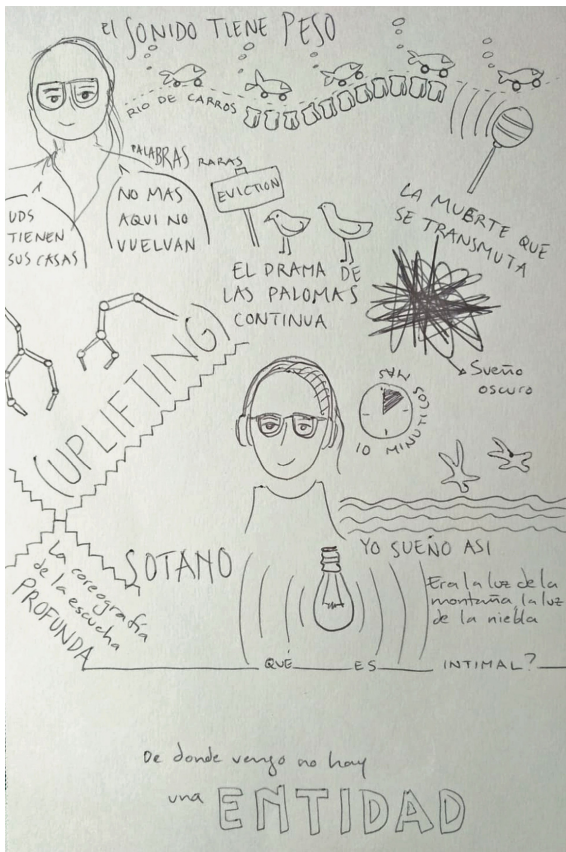 El SONIDO TIENE PESO
RIO DE CARROS
PALABRAS RARAS
UDS
TIENEN
SUS CASAS
NO MAS
AQUI NO
VUELVAN
EVICTION
EL DRAMA DE
LAS PALOMAS
CONTINUA
LA MUERTE QUE
SE TRANSMUTA
Sueño
oscuro
(UPLIFTING)
10 MINUTICOS
MAS
La coreografía
de la escucha
PROFUNDA
SOTANO
YO SUEÑO ASI
Era la luz de la
montaña la luz
de la niebla
QUÉ ES INTIMAL?
De donde vengo no hay
una ENTIDAD